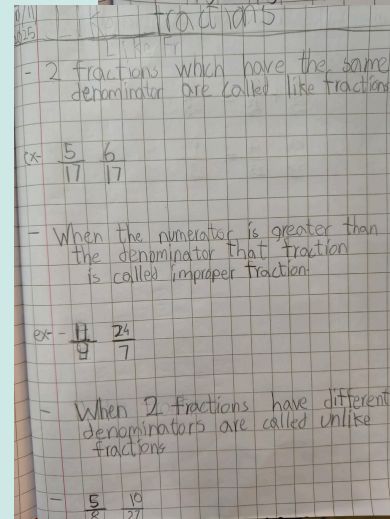 2025
fractions
- 2 fractions which have the same
denominator are called like fractions
ex- 5/17 6/17
- When the numerator is greater than
the denominator that fraction
is called improper fraction
ex- - 11/9 24/7
- When 2 fractions have different
denominators are called unlike
fractions
- 5/8 10/27